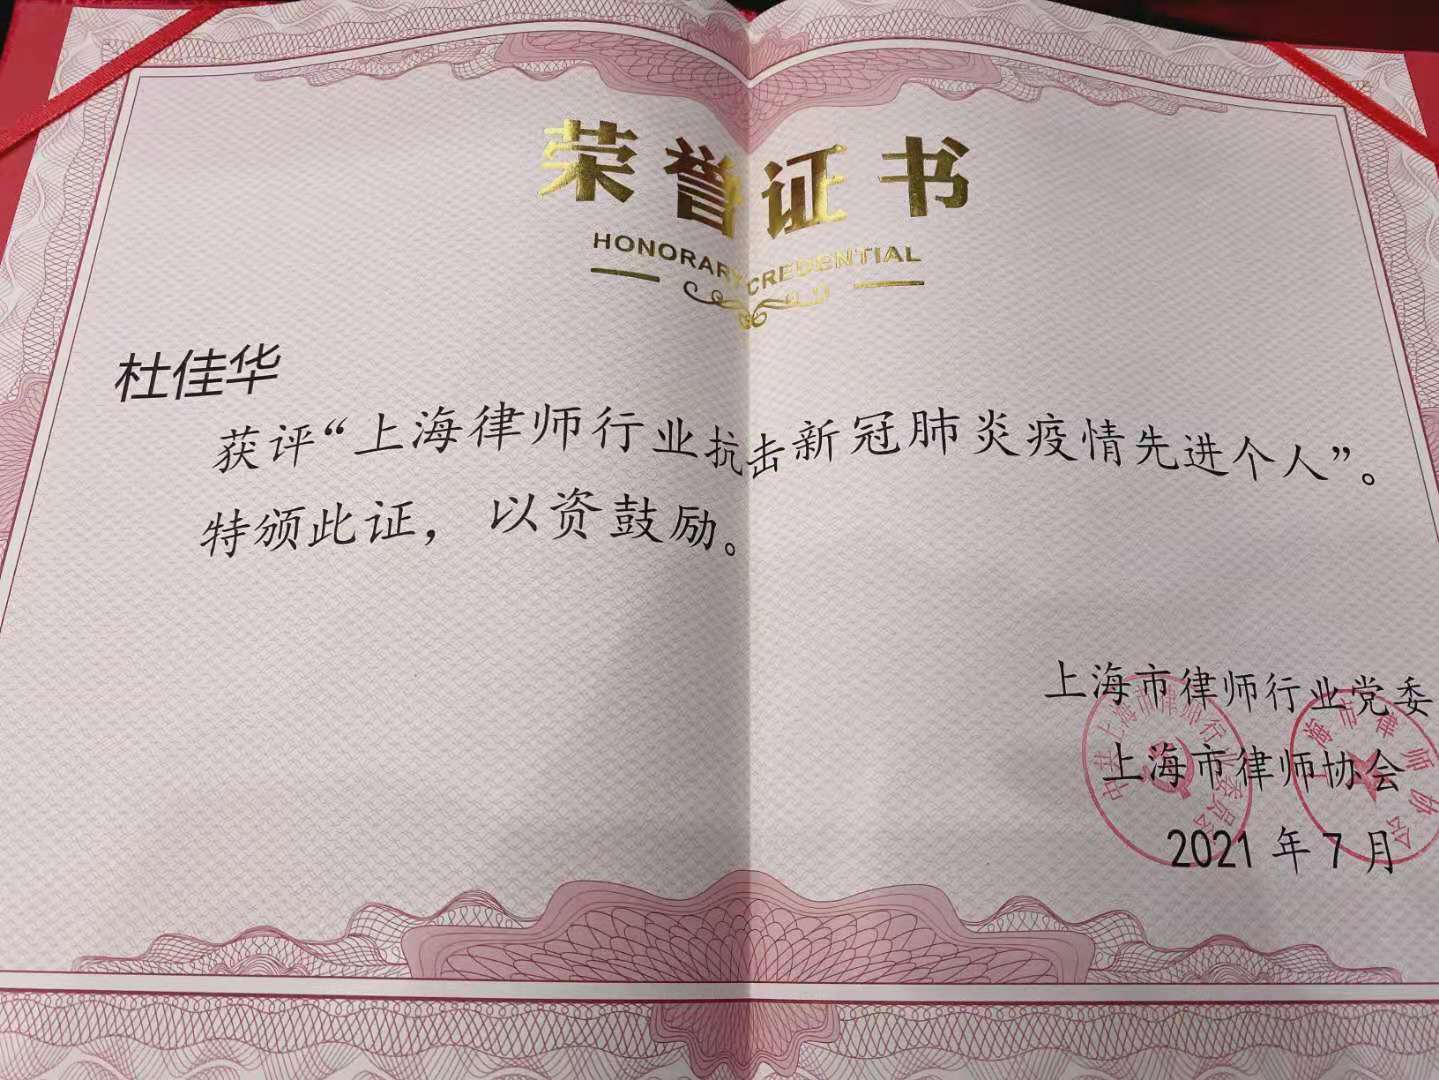 荣誉证书
HONORARY CREDENTIAL
杜佳华
获评“上海律师行业抗击新冠肺炎疫情先进个人”。
特颁此证，以资鼓励。
上海市律师行业党委
上海市律师协会
2021年7月
中共上海市律师行业委员会
上海市律师协会